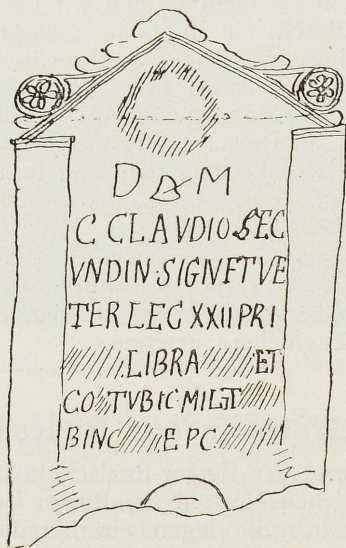 D M
C CLAVDIO SEC
VNDIN·SIGNFTVE
TER LEG XXII PRI
LIBRA ET
CO TVBIC·MILIT
BINC EPC